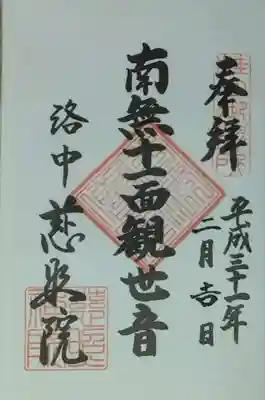 奉拝
平成三十一年
二月吉日
南無十一面観世音
洛中
慈眼院